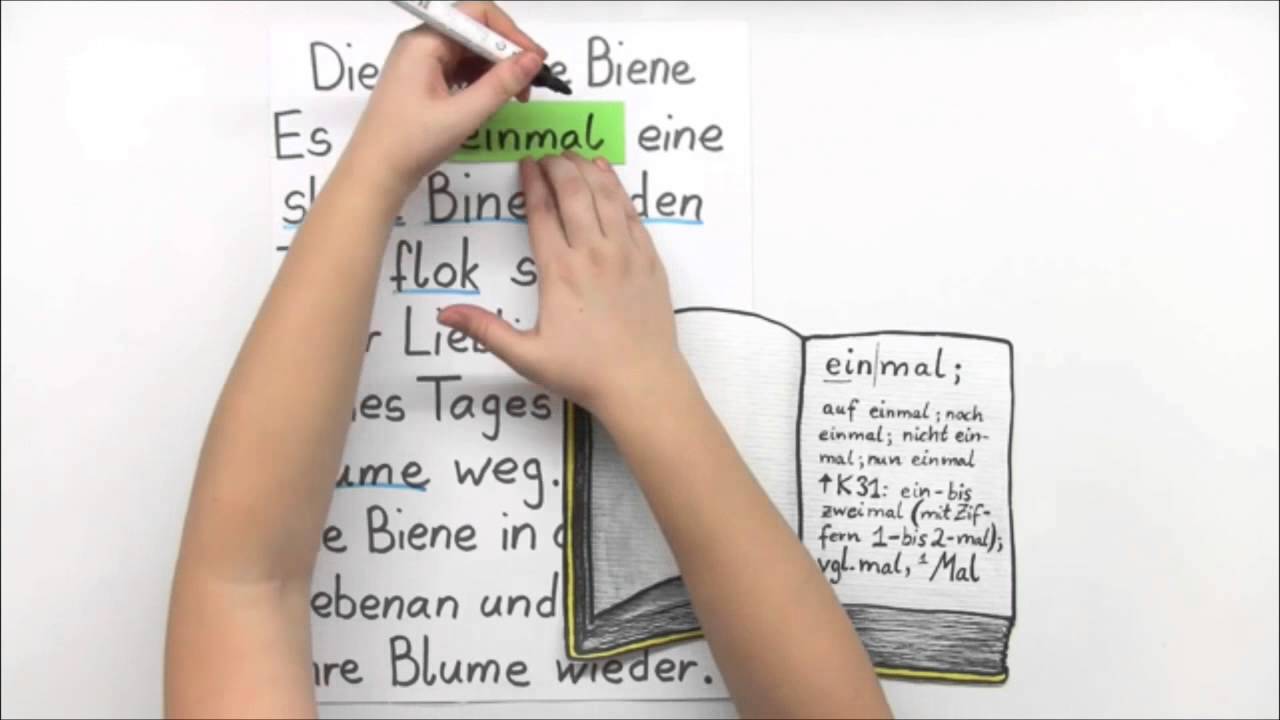 Die Biene
Es einmal eine
Bine den
flok
Tages
weg.
Biene in
und
Blume wieder.
ein|mal;
auf einmal; noch
einmal; nicht ein-
mal; nun einmal
↑K31: ein-bis
zweimal (mit Zif-
fern 1-bis 2-mal);
vgl. mal, ¹Mal